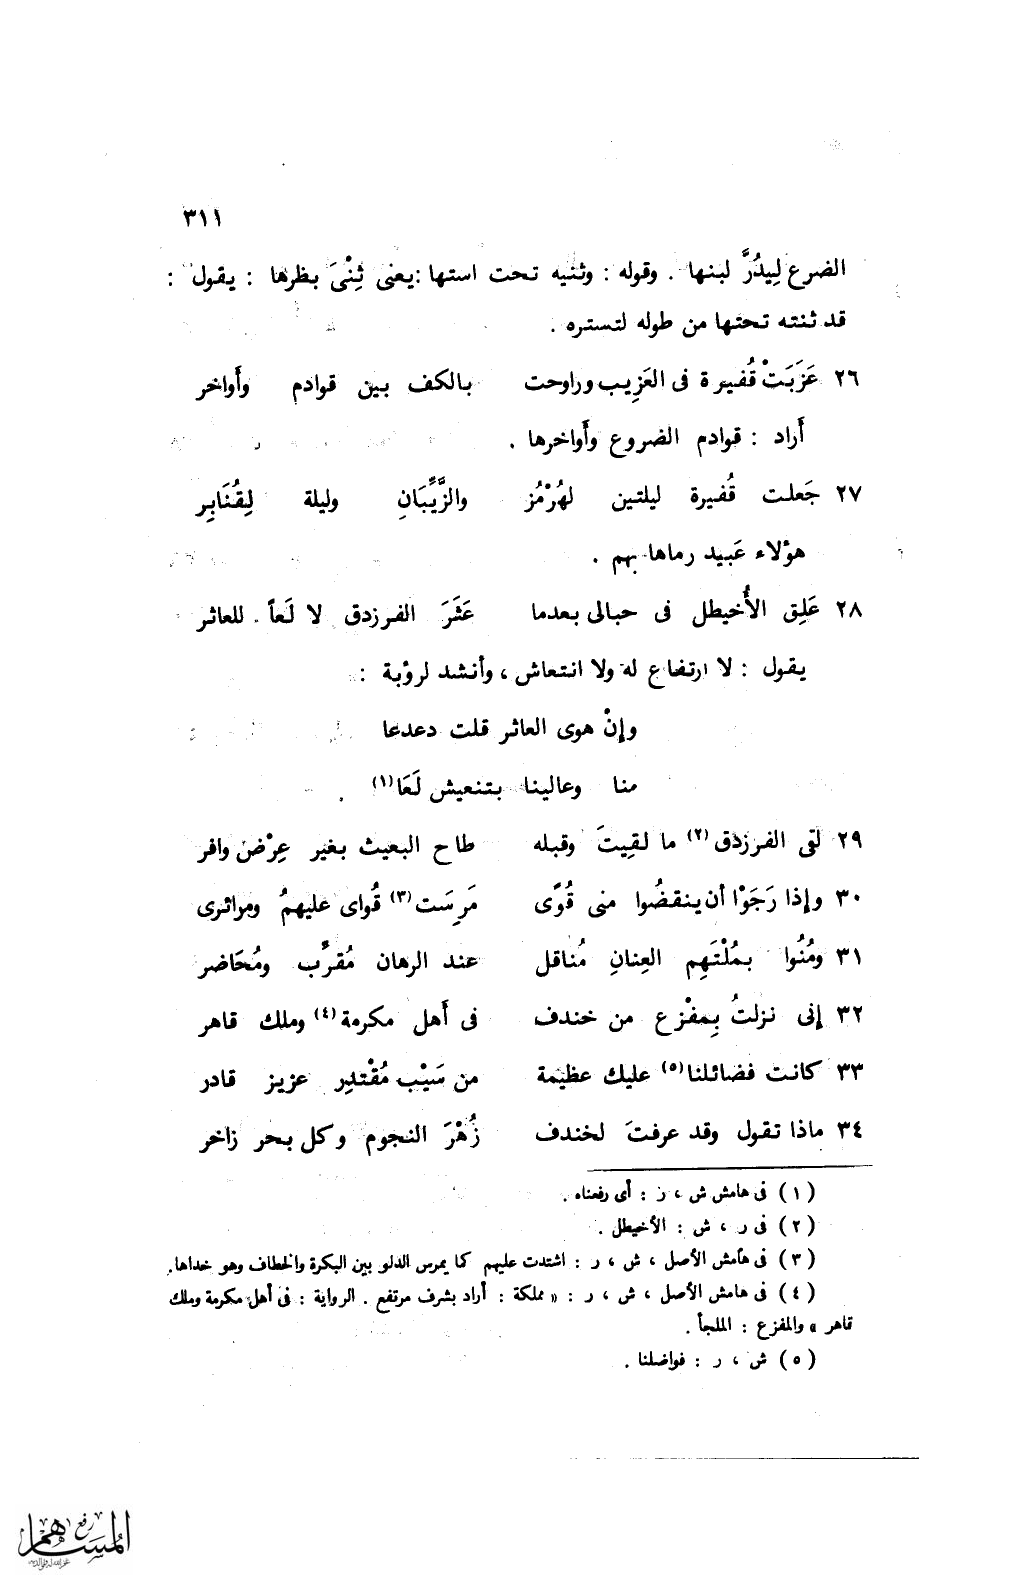 ٣١١
الضرع لِيدُرَّ لبنها . وقوله : وثنيه تحت استها : يعنى ثِنْىَ بظرها : يقول :
قد ثنته تحتها من طوله لتستره .
٢٦ عَزَبَتْ قُفيرة فى العَزِيب وراوحت بالكف بين قوادم وأَواخر
أَراد : قوادم الضروع وأَواخرها .
٢٧ جَعلت قُفيرة ليلتين لهُرْمُز والزَّيِّبَانِ وليلة لِقُنَابِر
هؤلاء عَبيد رماها بهم .
٢٨ عَلِق الأُخيطل فى حبالى بعدما عَثَرَ الفرزدق لا لَعاً للعاثر
يقول : لا ارتفاع له ولا انتعاش ، وأنشد لرؤبة :
وإنْ هوى العاثر قلت دعدعا
منا وعالينا بتنعيش لَعَا (١) .
٢٩ لقى الفرزدق (٢) ما لقِيتَ وقبله طاح البعيث بغير عِرْض وافر
٣٠ وإذا رَجَوْا أن ينقضُوا منى قُوًى مَرِسَت (٣) قُواى عليهمُ ومرائرى
٣١ ومُنُوا بمُلْتَهِم العِنانِ مُناقل عند الرهان مُقرِّب ومُحَاضر
٣٢ إنى نزلتُ بِمفْزع من خندف فى أَهل مكرمة (٤) وملك قاهر
٣٣ كانت فضائلنا (٥) عليك عظيمة من سَيْب مُقْتدِر عزيز قادر
٣٤ ماذا تقول وقد عرفتَ لخندف زُهْرَ النجوم وكل بحر زاخر
(١) فى هامش ش ، ر : أى رفعناه .
(٢) فى ر ، ش : الأخيطل .
(٣) فى هامش الأصل ، ش ، ر : اشتدت عليهم كما يمرس الدلو بين البكرة والخطاف وهو خداها .
(٤) فى هامش الأصل ، ش ، ر : « مملكة : أراد بشرف مرتفع . الرواية : فى أهل مكرمة وملك
قاهر » والمفزع : الملجأ .
(٥) ش ، ر : فواضلنا .
رفع
المساهم